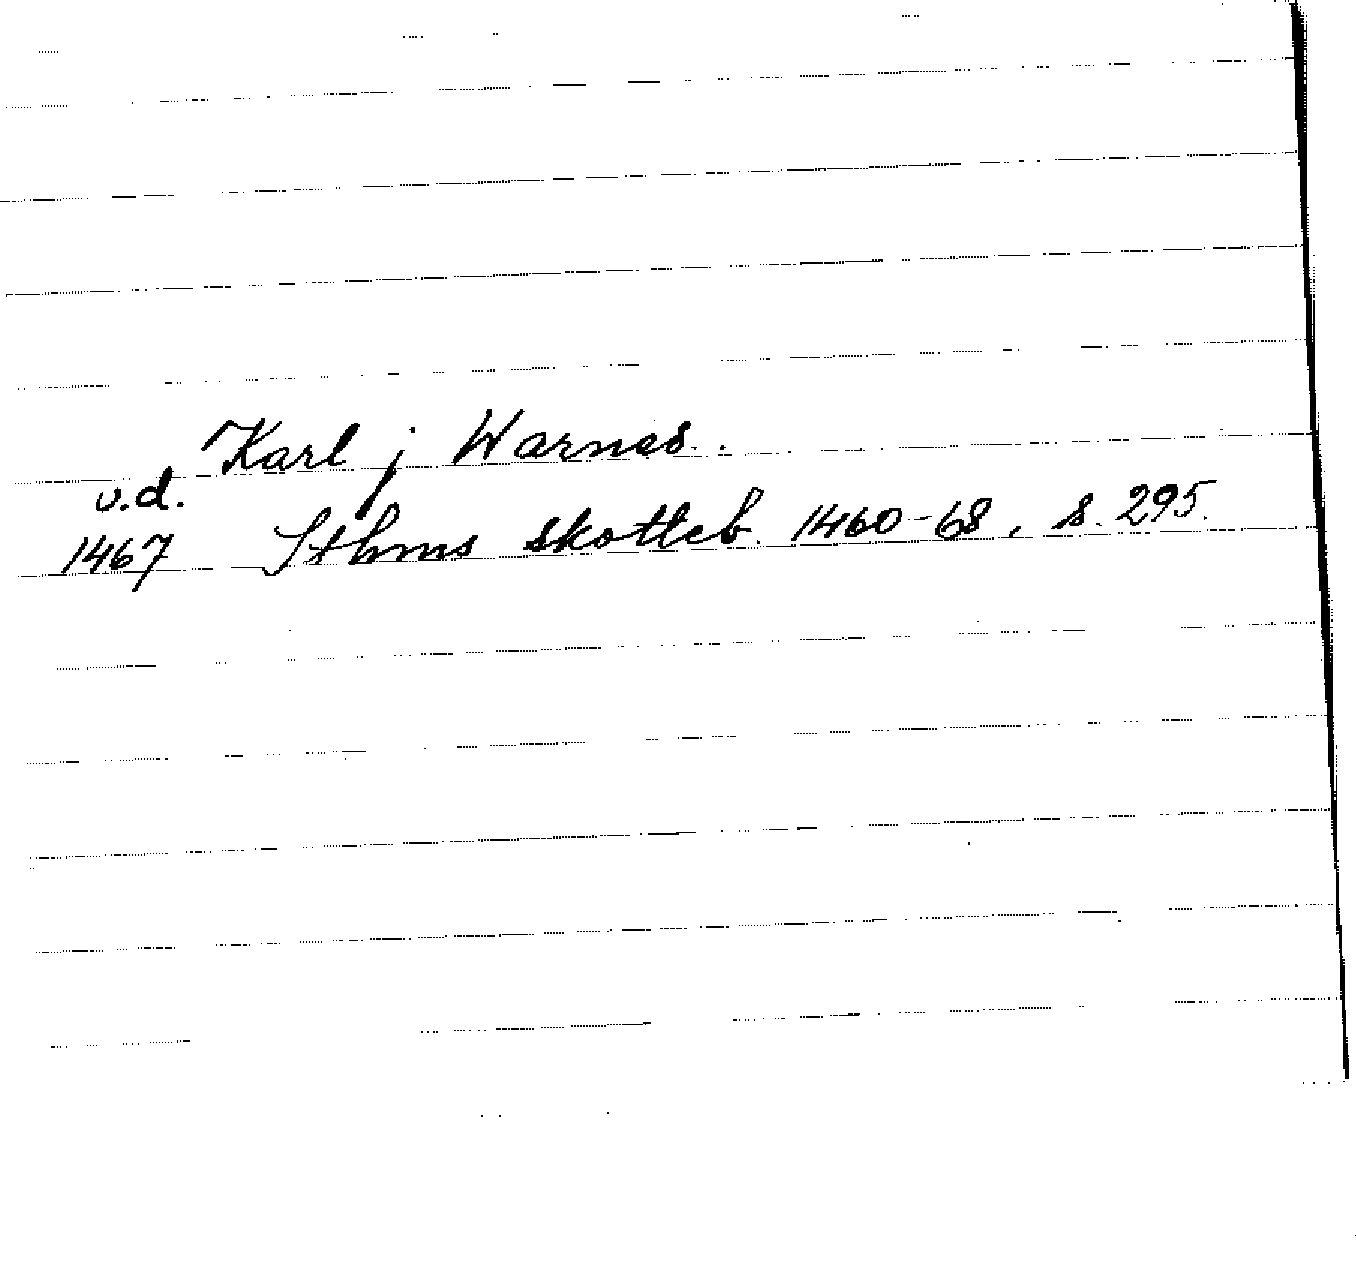 Karl j Warnes.
u.d.
1467 Sthms skotteb. 1460-68, s. 295.